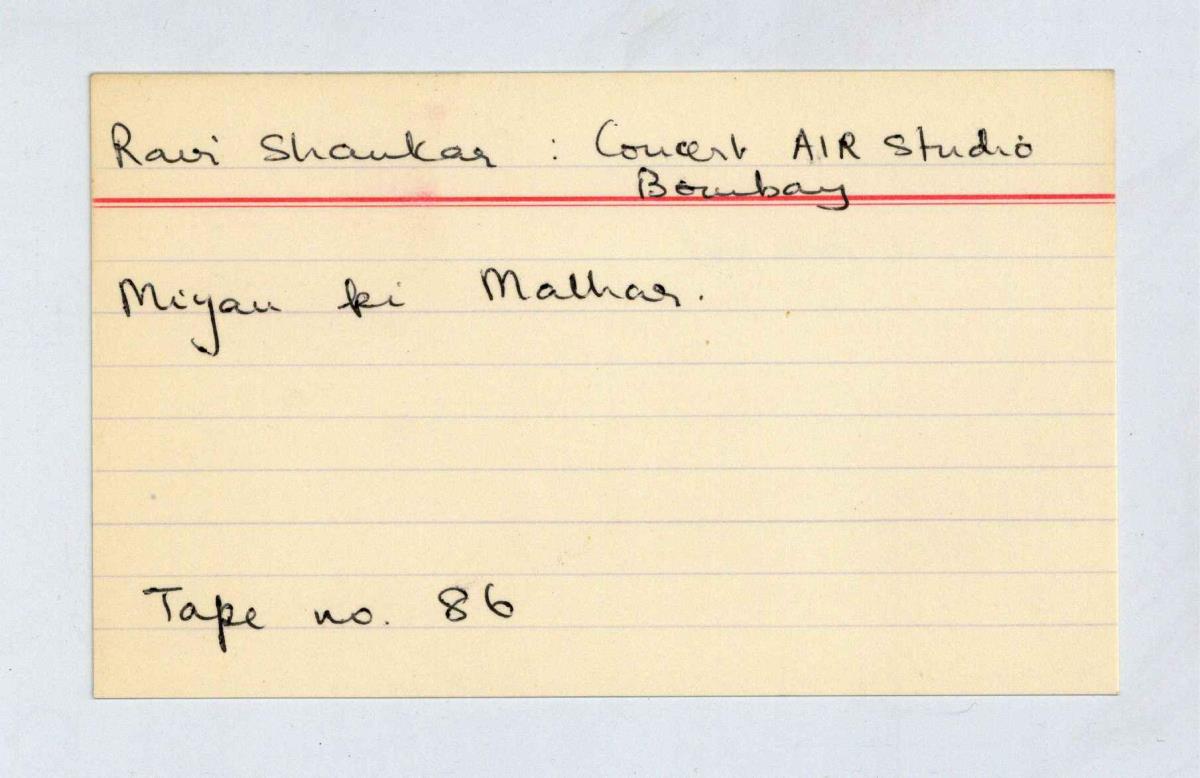 Ravi Shankar : Concert AIR Studio
Bombay
Miyan ki Malhar.
Tape no. 86